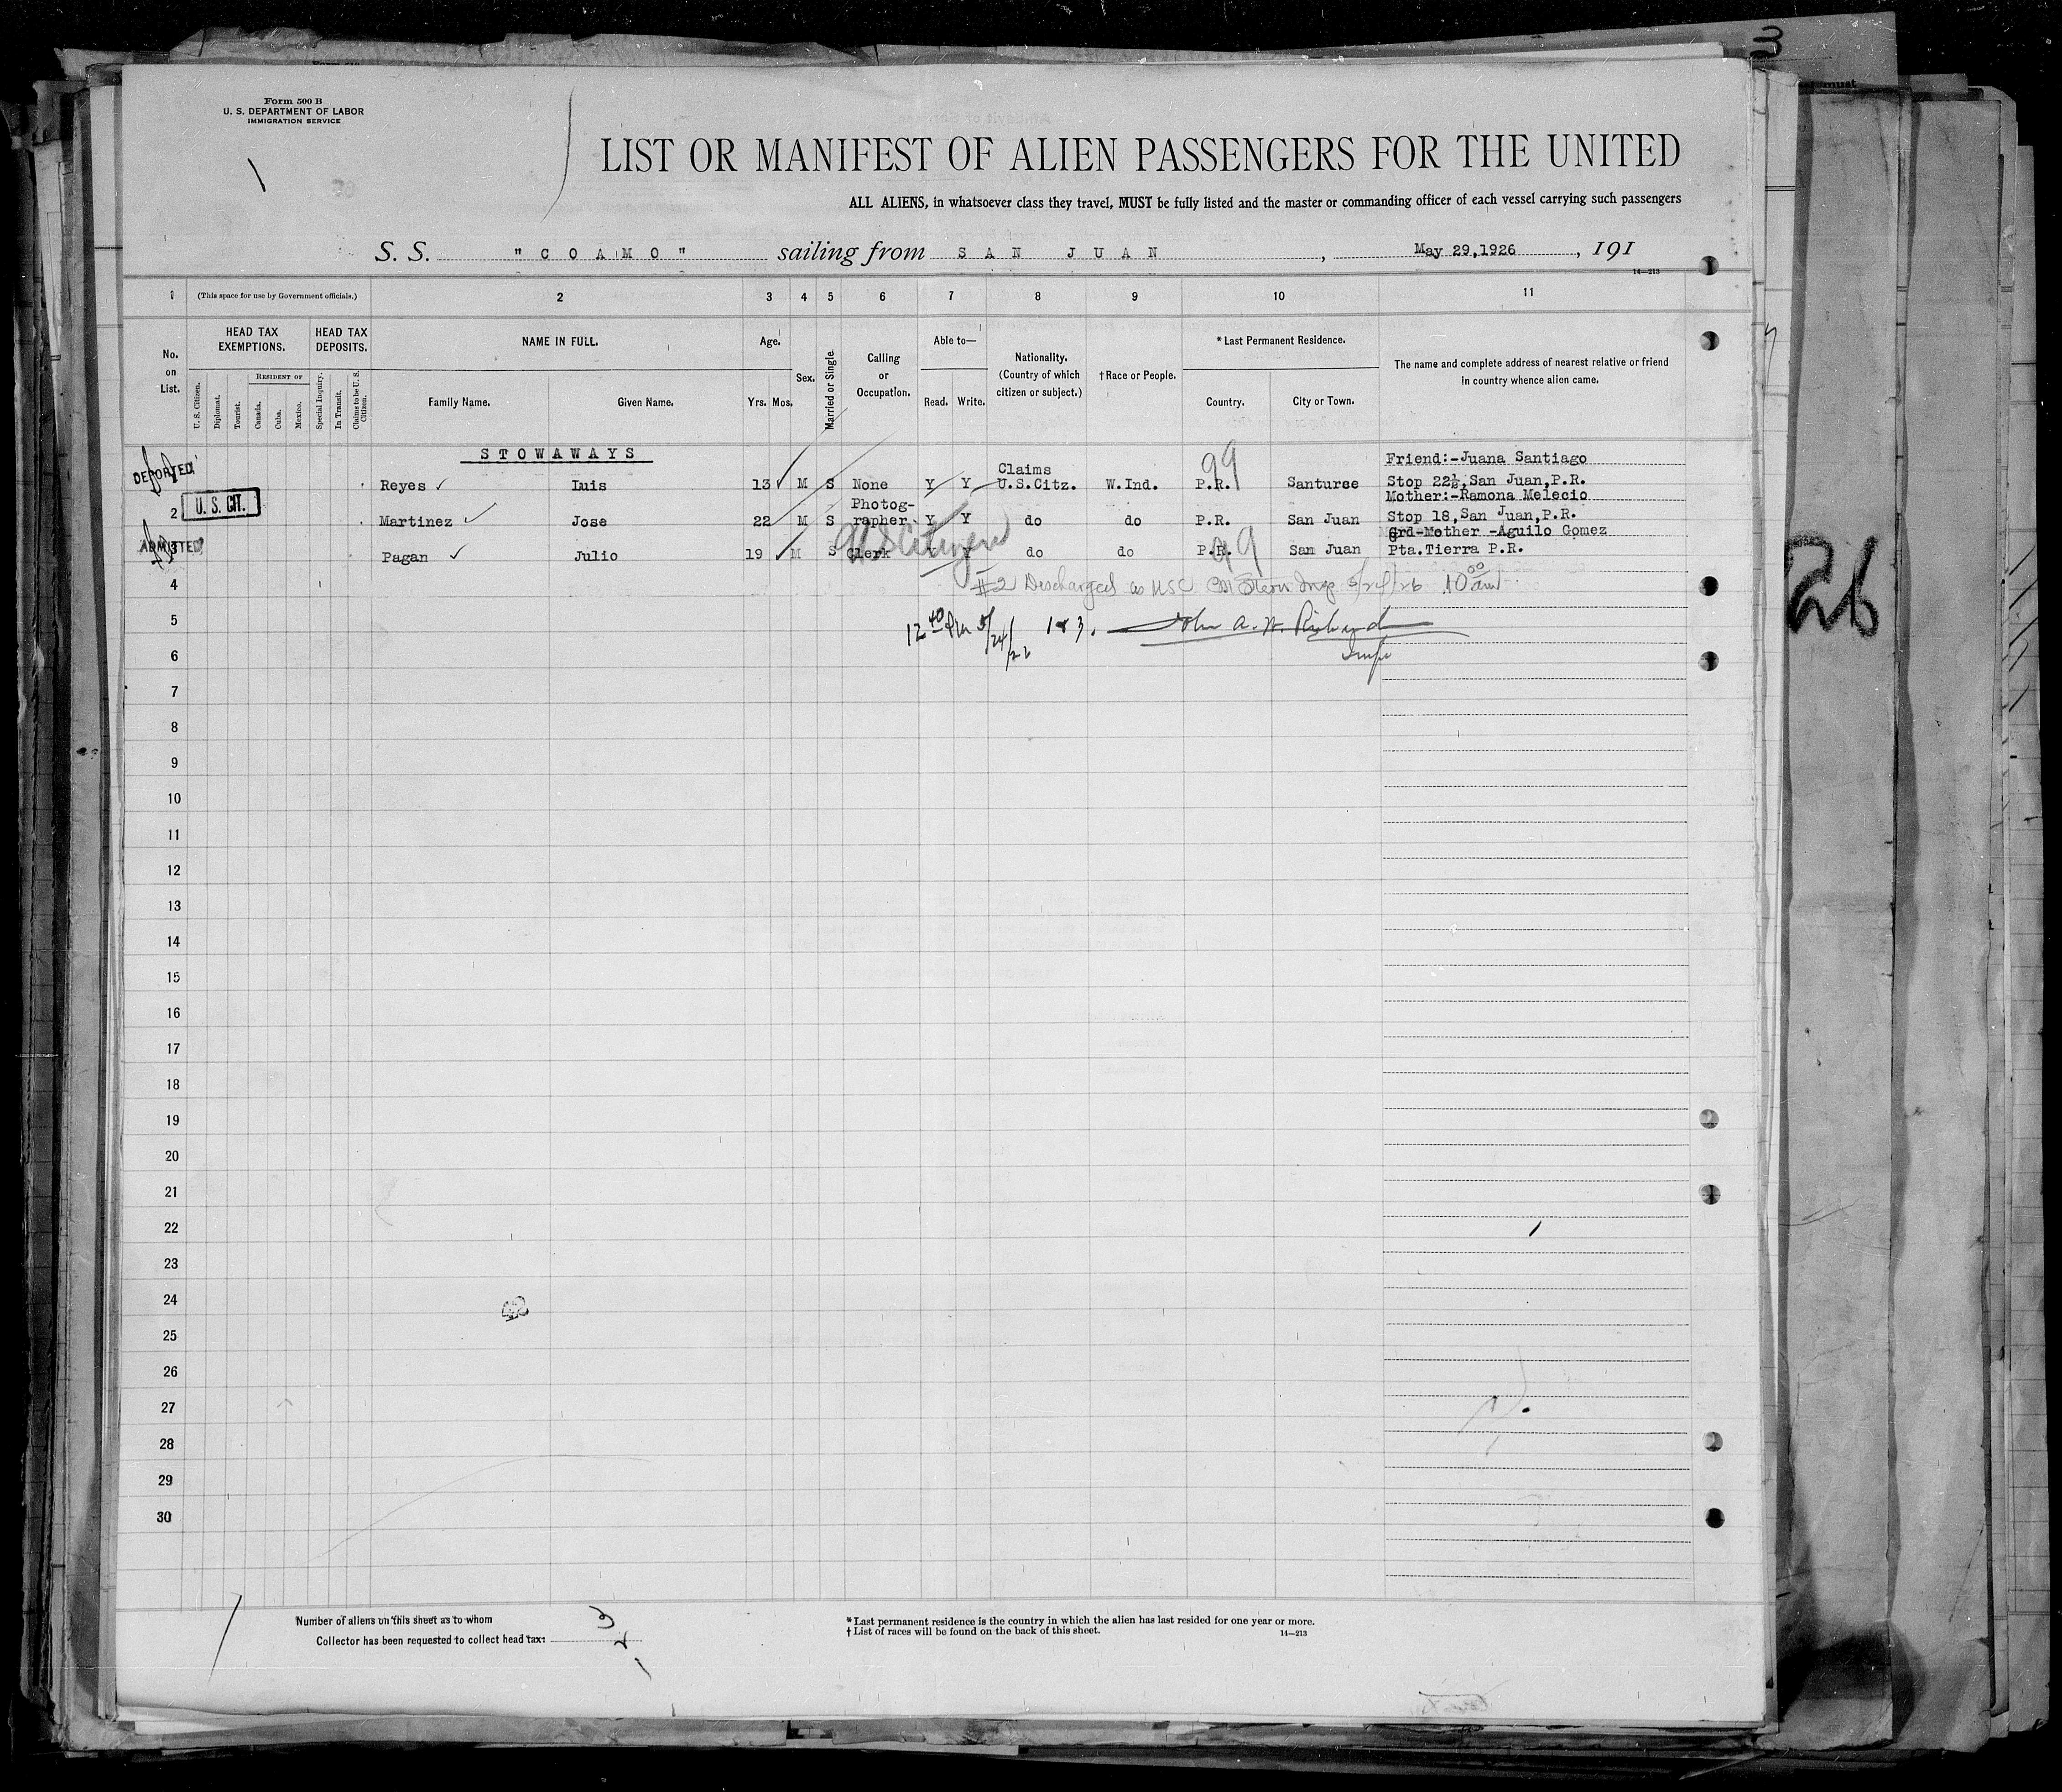 Form 500 B
U. S. DEPARTMENT OF LABOR
IMMIGRATION SERVICE
LIST OR MANIFEST OF ALIEN PASSENGERS FOR THE UNITED
ALL ALIENS, in whatsoever class they travel, MUST be fully listed and the master or commanding officer of each vessel carrying such passengers
S. S. "COAMO" sailing from SAN JUAN, May 29,1926, 191
14—213
1 (This space for use by Government officials.) 2 3 4 5 6 7 8 9 10 11
No. on List.
HEAD TAX EXEMPTIONS.
HEAD TAX DEPOSITS.
U. S. Citizen. Diplomat. Tourist. RESIDENT OF Canada. Cuba. Mexico. Special Inquiry. In Transit. Claims to be U. S. Citizen.
NAME IN FULL.
Family Name. Given Name.
Age.
Yrs. Mos.
Sex.
Married or Single.
Calling or Occupation.
Able to—
Read. Write.
Nationality. (Country of which citizen or subject.)
†Race or People.
*Last Permanent Residence.
Country. City or Town.
The name and complete address of nearest relative or friend in country whence alien came.
STOWAWAYS
DEPORTED Reyes Luis 13 M S None Y Y Claims U.S.Citz. W.Ind. P.R. 99 Santurce Friend:-Juana Santiago Stop 22½,San Juan,P.R.
2 U. S. CIT. Martinez Jose 22 M S Photographer Y Y do do P.R. San Juan Mother:-Ramona Melecio Stop 18,San Juan,P.R.
US Citizen
ADMITTED 3 Pagan Julio 19 M S Clerk Y Y do do P.R. 99 San Juan Grd-Mother -Aguilo Gomez Pta.Tierra P.R.
4 #2 Discharged as USC Stern Insp 5/24/26 10 00 am
5 12 40 Pm 5/24/26 1 & 3. John A. W. Richard
6 Insp
7
8
9
10
11
12
13
14
15
16
17
18
19
20
21
22
23
24
25
26
27
28
29
30
Number of aliens on this sheet as to whom
Collector has been requested to collect head tax:
3
2
1
* Last permanent residence is the country in which the alien has last resided for one year or more.
† List of races will be found on the back of this sheet.
14—213
26
3